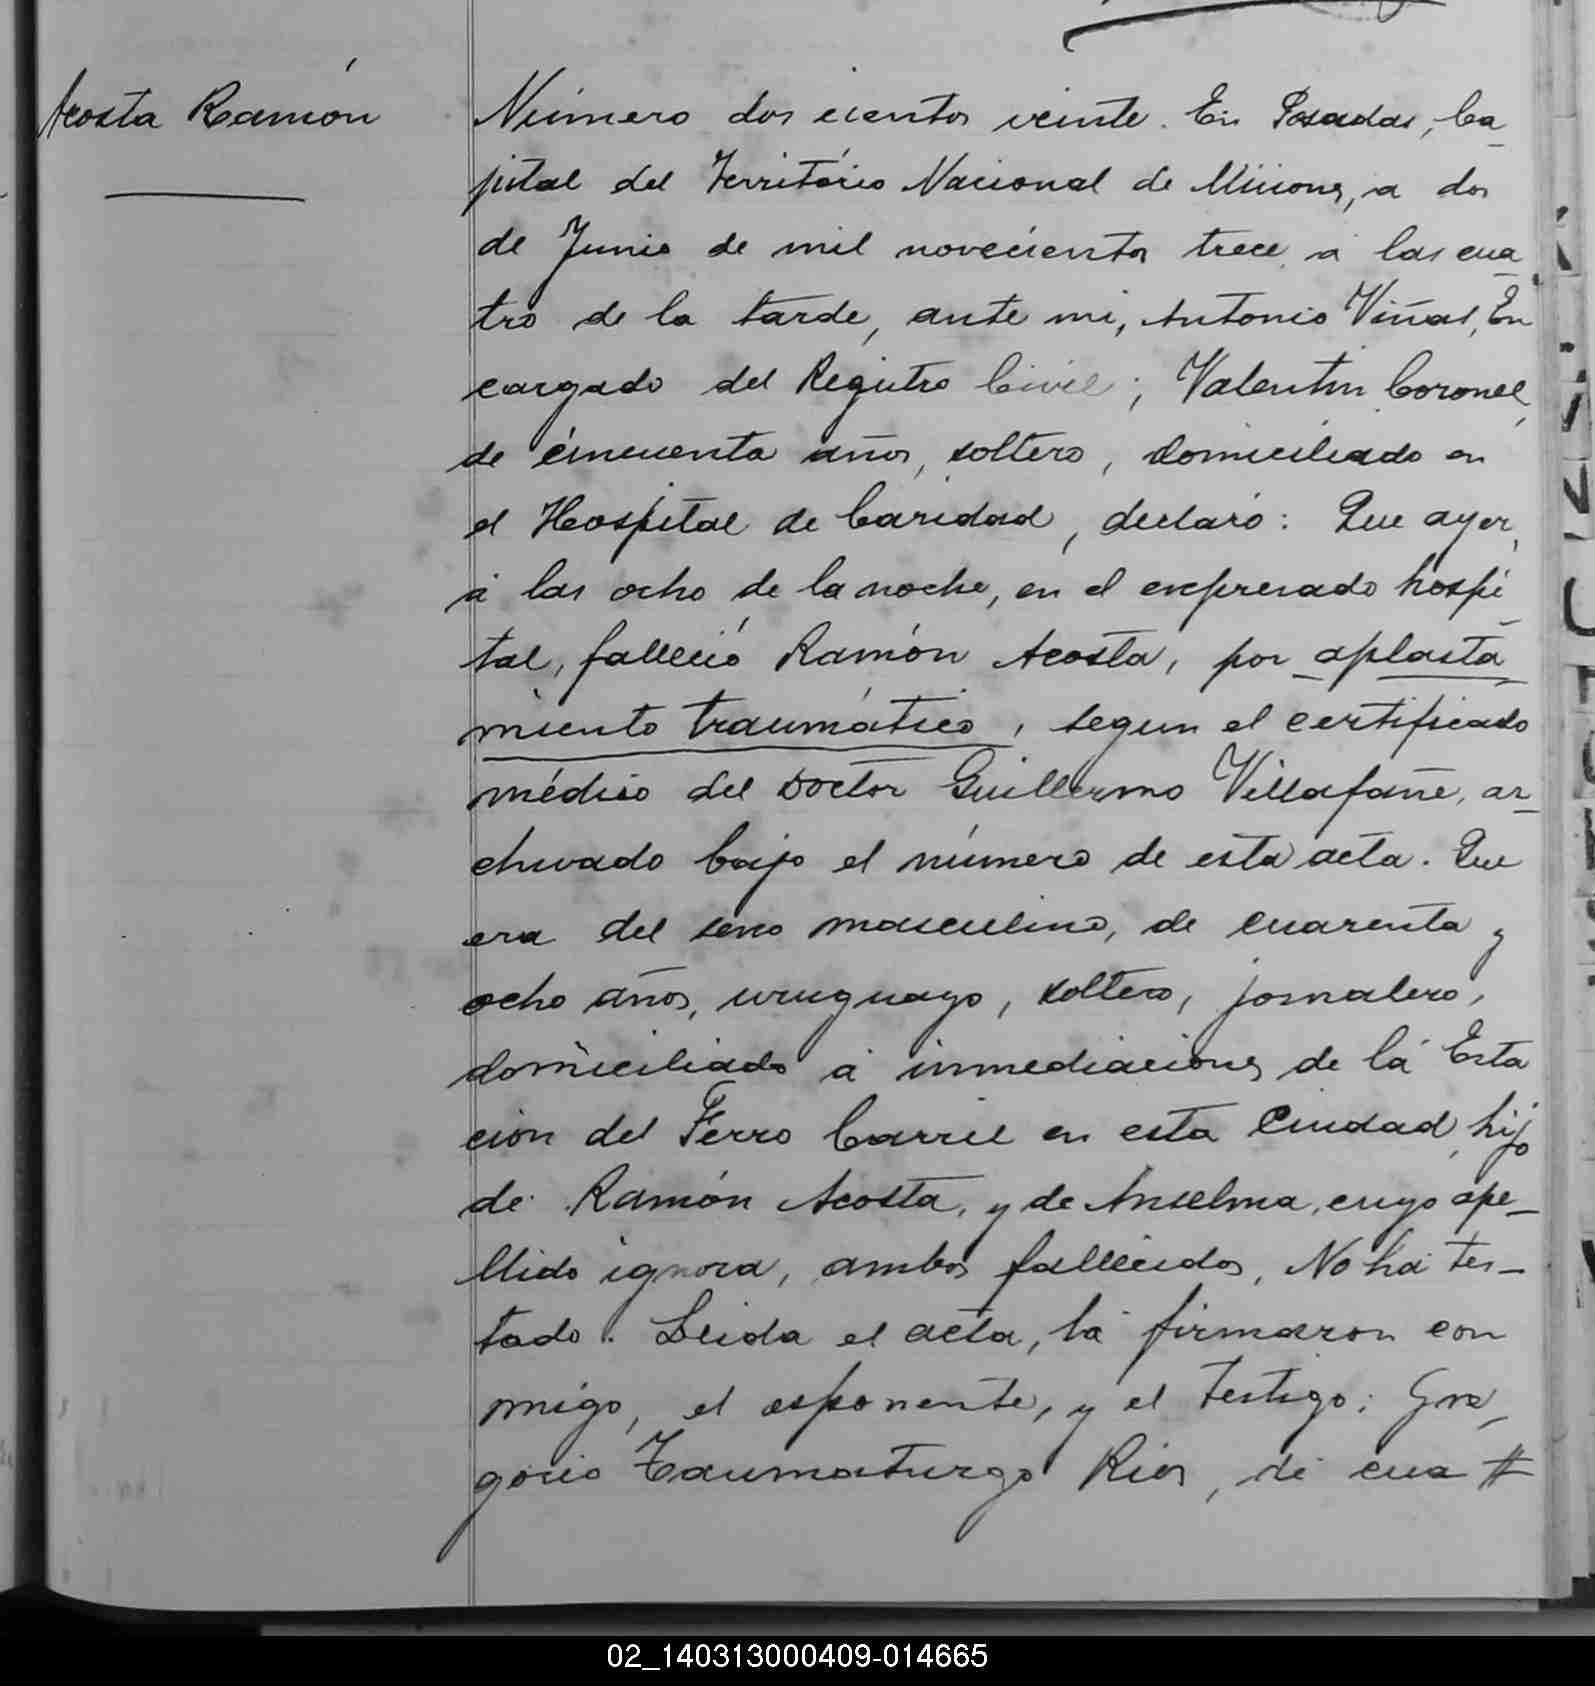 Acosta Ramón
Número dos cientos veinte. En Posadas, Ca_
pital del Território Nacional de Misiones, a dos
de Junio de mil novecientos trece á las cua_
tro de la tarde, ante mi, Antonio Viñas, En
cargado del Registro Civil; Valentin Coronel,
de cincuenta años, soltero, domiciliado en
el Hospital de Caridad, declaró: Que ayer,
á las ocho de la noche, en el expresado hospi_
tal, falleció Ramón Acosta, por aplasta_
miento traumático, segun el certificado
médico del Doctor Guillermo Villafañe, ar_
chivado bajo el número de esta acta. Que
era del sexo masculino, de cuarenta y
ocho años, uruguayo, soltero, jornalero,
domiciliado á inmediaciones de la Esta
cion del Ferro Carril en esta Ciudad, hijo
de Ramón Acosta, y de Anselma, cuyo ape_
llido ignora, ambos fallecidos, No ha tes_
tado. Leida el acta, la firmaron con
migo, el esponente, y el testigo: Gre_
gorio Taumaturgo Rios, de cua #
02_140313000409-014665